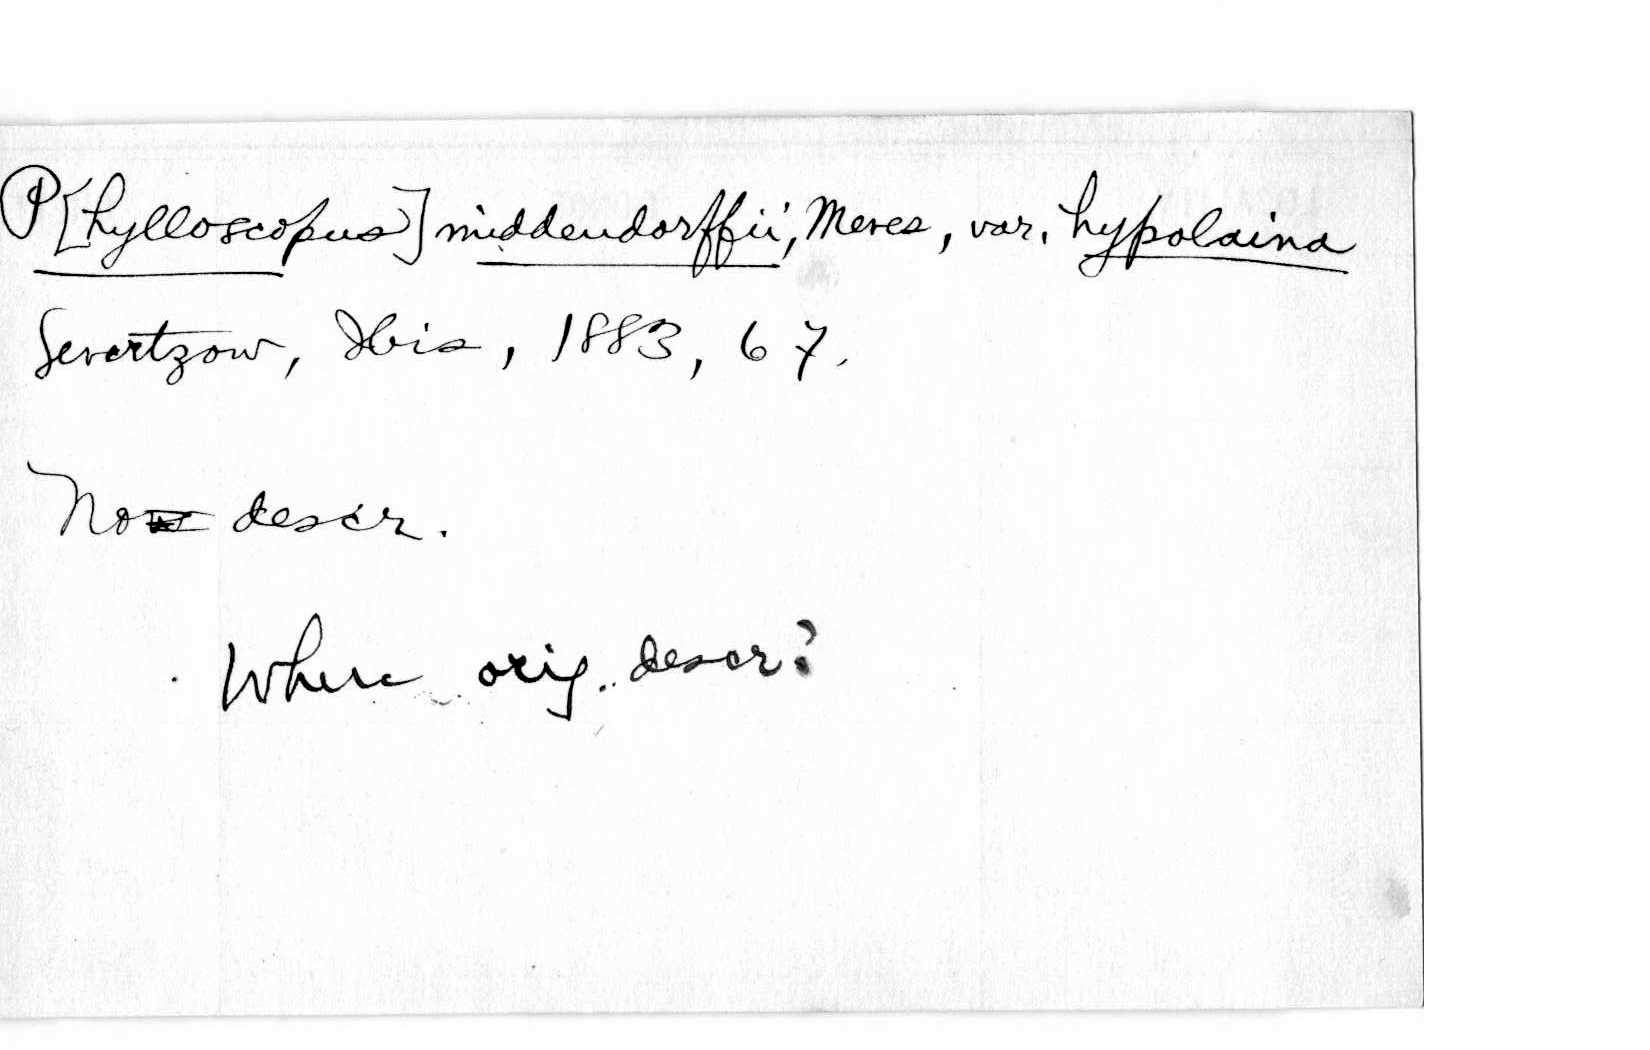 P[hylloscopus] middendorffii, Meves, var. hypolaina
Severtzow, Ibis, 1883, 67.
No descr.
Where orig. descr?